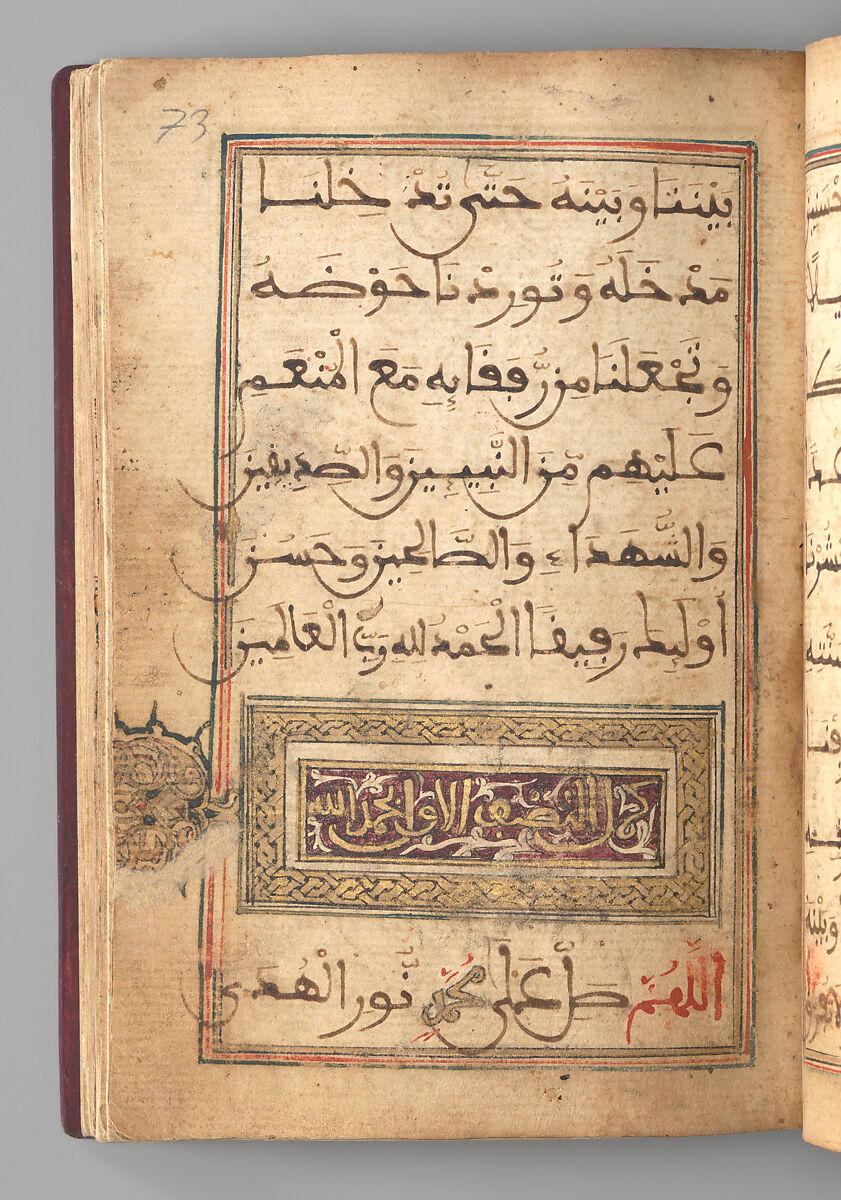 73
بَيْنَنَا وَبَيْنَهُ حَتَّى تُدْخِلَنَا
مَدْخَلَهُ وَتُورِدْنَا حَوْضَهُ
وَتَجْعَلَنَا مِن رُّفَقَائِهِ مَعَ الْمُنْعَمِ
عَلَيْهِم مِّنَ النَّبِيِينَ وَالصِّدِيقِينَ
وَالشُّهَدَاءِ وَالصَّالِحِينَ وَحَسُنَ
أُوْلَئِكَ رَفِيقًا الْحَمْدُ لِلهِ رَبِّ الْعَالَمِينَ
كمل النصف الاول بحمد الله
اللَّهُمَّ صَلِّ عَلَى مُحَمَّدٍ نُّورِ الْهُدَى